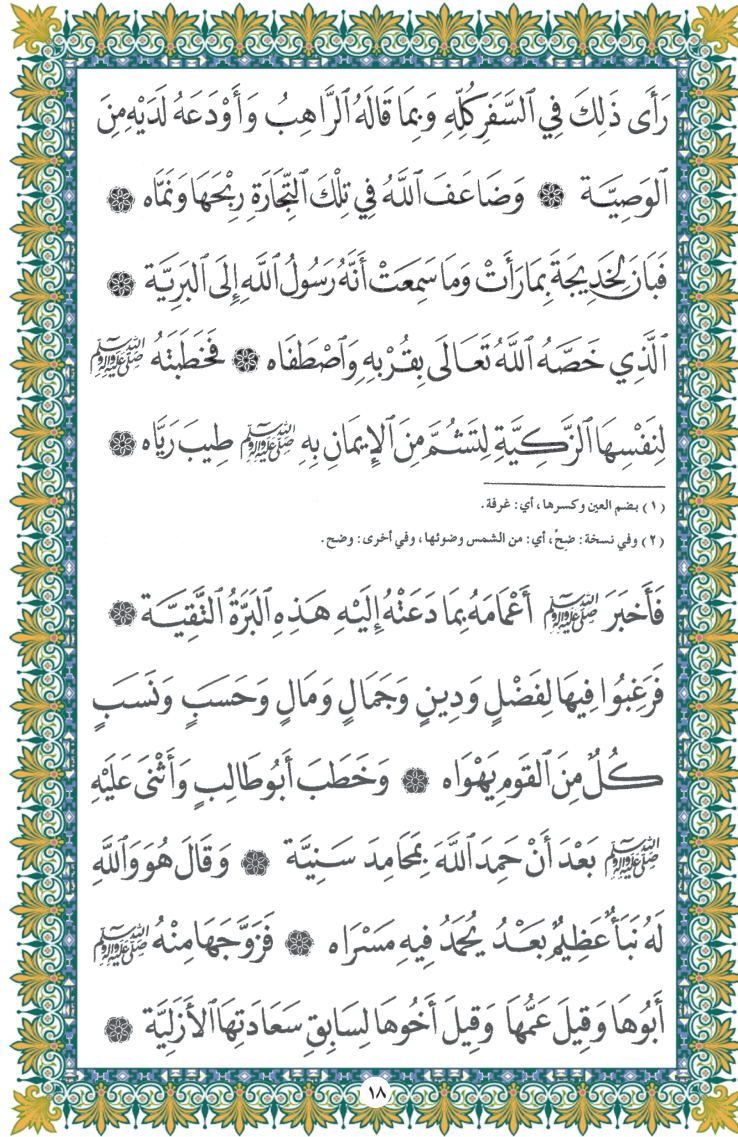 رَأَى ذَلِكَ فِي ٱلسَّفَرِ كُلِّهِ وَبِمَا قَالَهُ ٱلرَّاهِبُ وَأَوْدَعَهُ لَدَيْهِ مِنَ
ٱلوَصِيَّة ۞ وَضَاعَفَ ٱللَّهُ فِي تِلْكَ ٱلتِّجَارَةِ رِبْحَهَا وَنَمَّاه ۞
فَبَانَ لِخَدِيجَةَ بِمَا رَأَتْ وَمَا سَمِعَتْ أَنَّهُ رَسُولُ ٱللَّهِ إِلَى ٱلبَرِيَّة ۞
ٱلَّذِي خَصَّهُ ٱللَّهُ تَعَالَى بِقُرْبِهِ وَٱصْطَفَاه ۞ فَخَطَبَتْهُ ﷺ
لِنَفْسِهَا ٱلزَّكِيَّةِ لِتَشُمَّ مِنَ ٱلإِيمَانِ بِهِ ﷺ طِيبَ رَيَّاه ۞
(١) بضم العين وكسرها، أي: غرفة.
(٢) وفي نسخة: ضِحٌ، أي: من الشمس وضوئها، وفي أخرى: وضح.
فَأَخبَرَ ﷺ أَعْمَامَهُ بِمَا دَعَتْهُ إِلَيْهِ هَذِهِ ٱلبَرَّةُ ٱلتَّقِيَّة ۞
فَرَغِبُوا فِيهَا لِفَضْلٍ وَدِينٍ وَجَمَالٍ وَمَالٍ وَحَسَبٍ وَنَسَبٍ
كُلٌّ مِنَ ٱلقَومِ يَهْوَاه ۞ وَخَطَبَ أَبُو طَالِبٍ وَأَثْنَى عَلَيْهِ
ﷺ بَعْدَ أَنْ حَمِدَ ٱللَّهَ بِمَحَامِدَ سَنِيَّة ۞ وَقَالَ هُوَ وَٱللَّهِ
لَهُ نَبَأٌ عَظِيمٌ بَعْدُ يُحْمَدُ فِيهِ مَسْرَاه ۞ فَزَوَّجَهَا مِنْهُ ﷺ
أَبُوهَا وَقِيلَ عَمُّهَا وَقِيلَ أَخُوهَا لِسَابِقِ سَعَادَتِهَا ٱلأَزَلِيَّة ۞
١٨